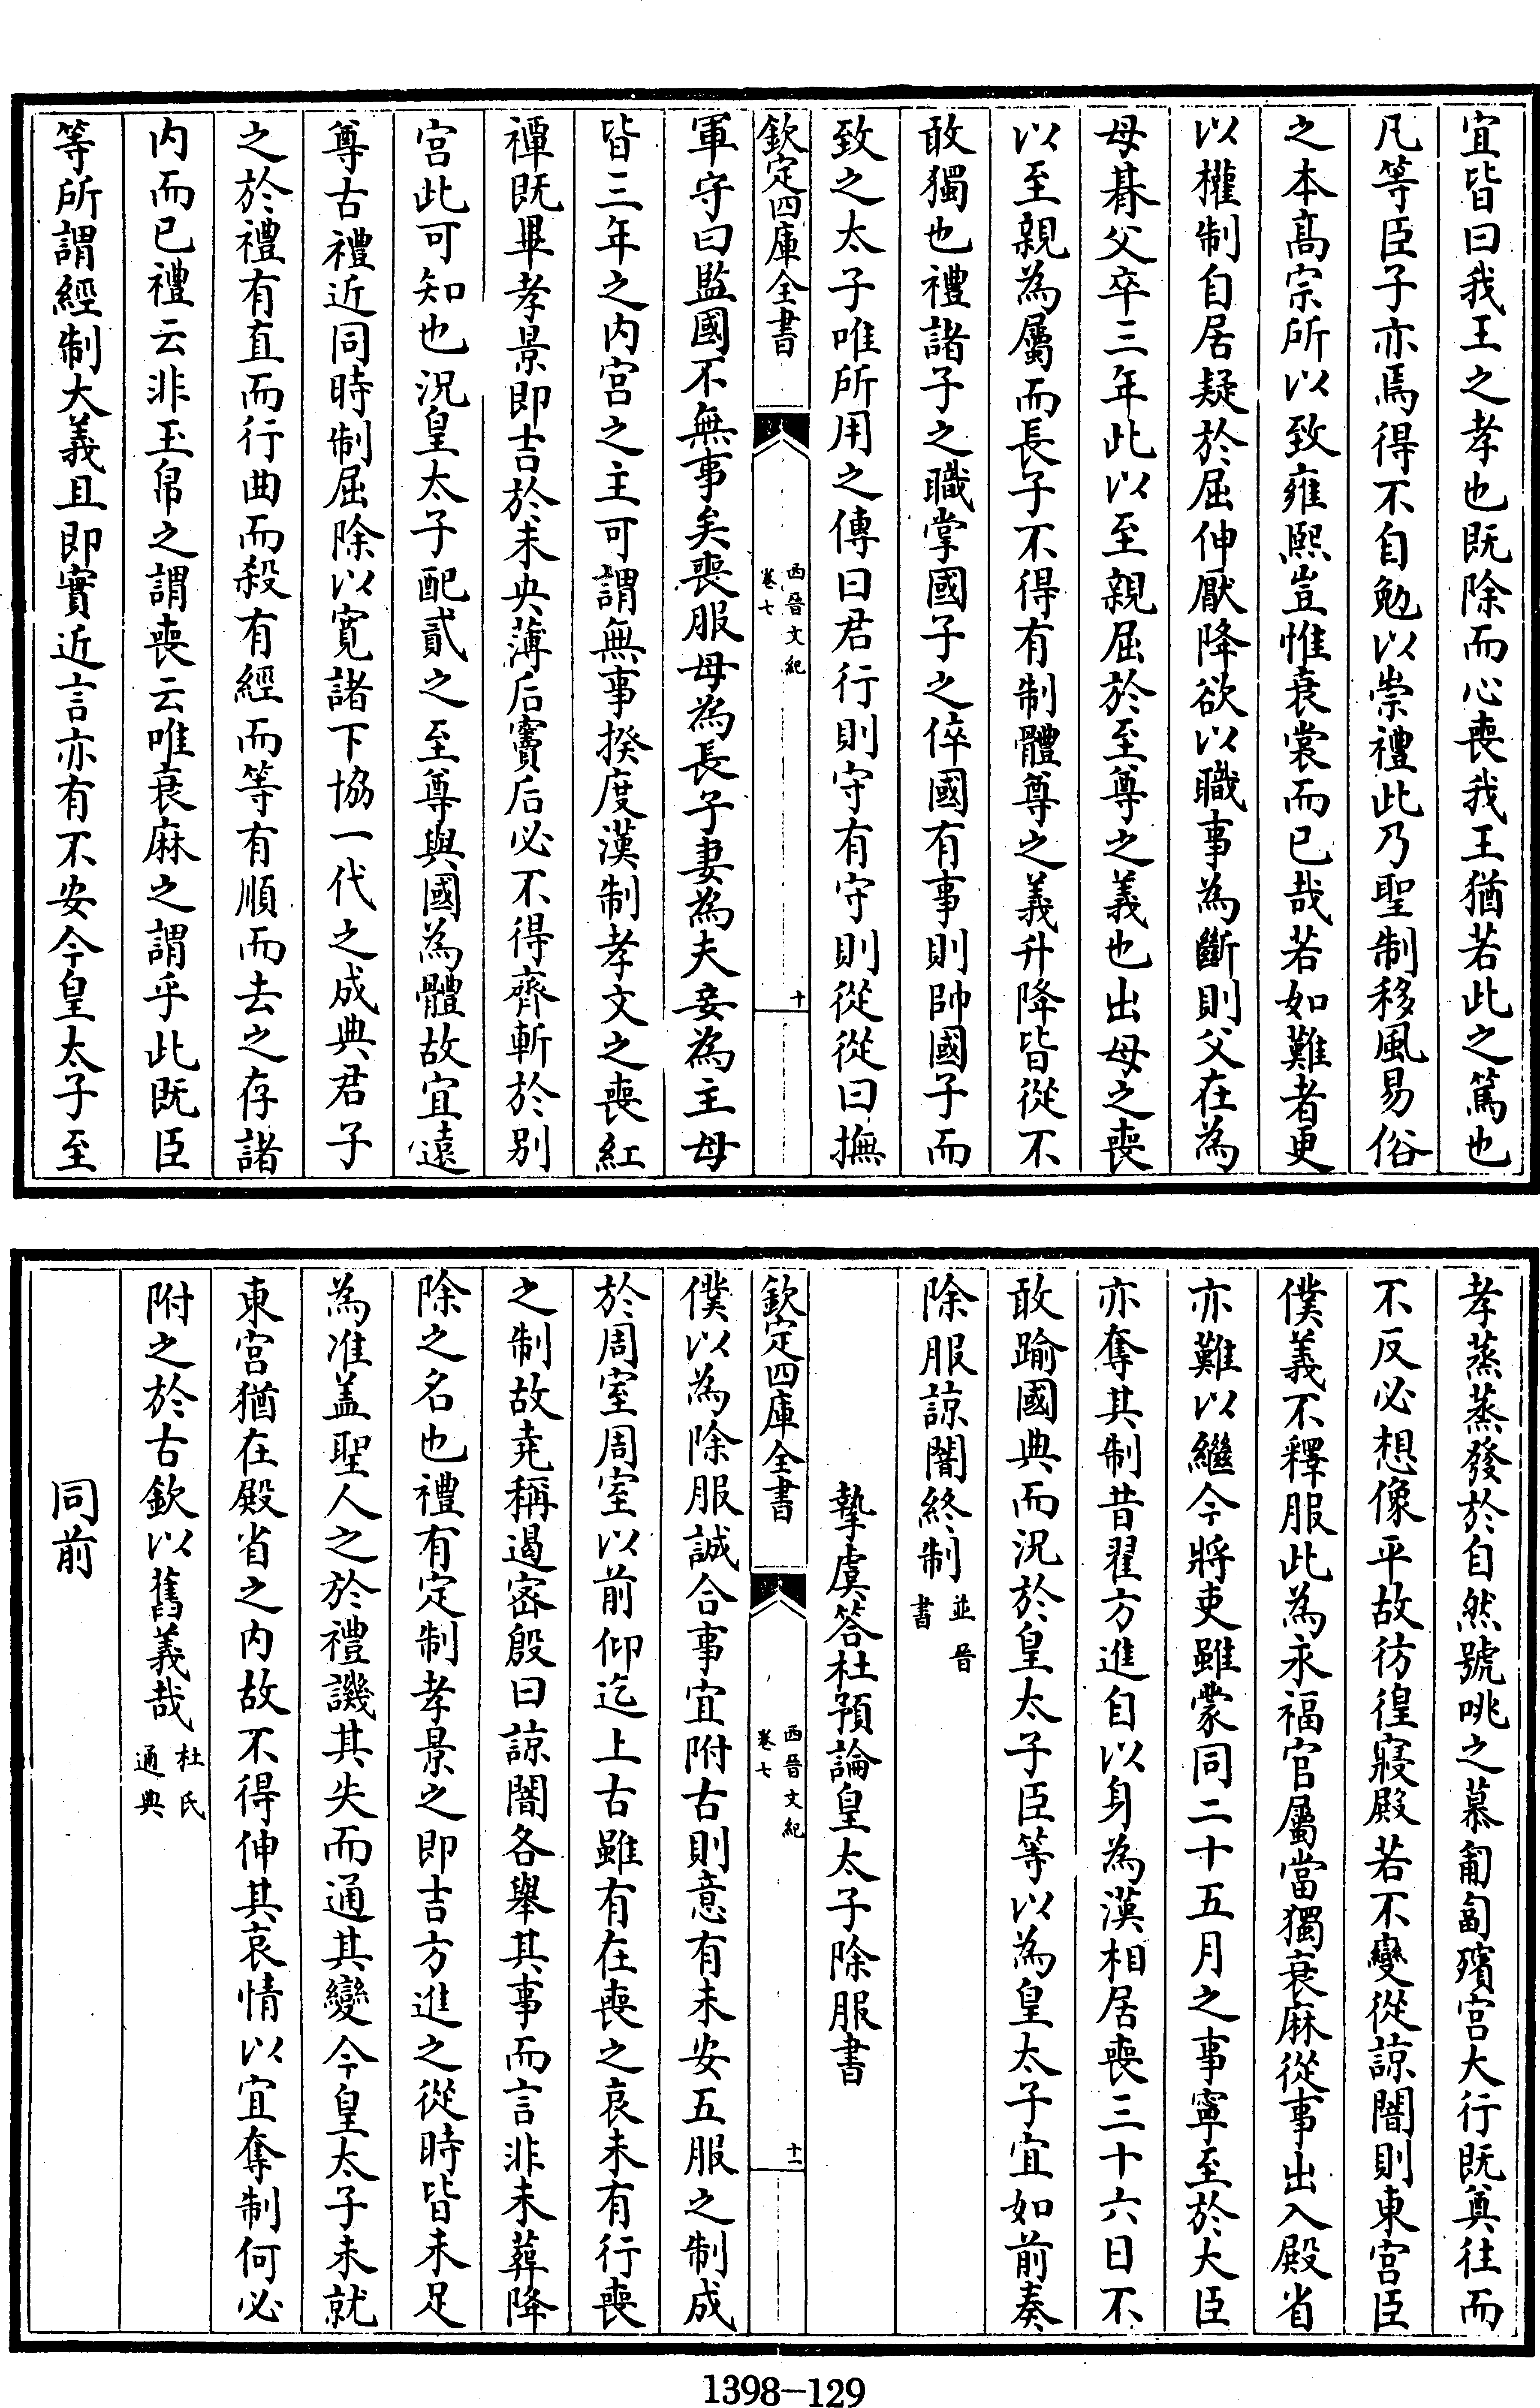 宜皆曰我王之孝也既除而心喪我王猶若此之篤也
凡等臣子亦焉得不自勉以崇禮此乃聖制移風易俗
之本髙宗所以致雍熙豈惟衰裳而已哉若如難者更
以權制自居疑於屈伸厭降欲以職事為斷則父在為
母朞父卒三年此以至親屈於至尊之義也出母之喪
以至親為屬而長子不得有制體尊之義升降皆從不
敢獨也禮諸子之職掌國子之倅國有事則帥國子而
致之太子唯所用之傳曰君行則守有守則從從曰撫
欽定四庫全書
西晉文紀
卷七
十
軍守曰監國不無事矣喪服母為長子妻為夫妾為主母
皆三年之内宫之主可謂無事揆度漢制孝文之喪紅
禫既畢孝景即吉於未央薄后竇后必不得齊斬於别
宫此可知也況皇太子配貳之至尊與國為體故宜遠
尊古禮近同時制屈除以寛諸下協一代之成典君子
之於禮有直而行曲而殺有經而等有順而去之存諸
内而已禮云非玉帛之謂喪云唯衰麻之謂乎此既臣
等所謂經制大義且即實近言亦有不安今皇太子至
孝蒸蒸發於自然號咷之慕匍匐殯宫大行既奠往而
不反必想像平故彷徨寢殿若不變從諒闇則東宫臣
僕義不釋服此為永福官屬當獨衰麻從事出入殿省
亦難以繼今將吏雖蒙同二十五月之事寧至於大臣
亦奪其制昔翟方進自以身為漢相居喪三十六日不
敢踰國典而況於皇太子臣等以為皇太子宜如前奏
除服諒闇終制
並晉
書
摯虞答杜預論皇太子除服書
欽定四庫全書
西晉文紀
卷七
十一
僕以為除服誠合事宜附古則意有未安五服之制成
於周室周室以前仰迄上古雖有在喪之哀未有行喪
之制故堯稱遏宻殷曰諒闇各舉其事而言非未葬降
除之名也禮有定制孝景之即吉方進之從時皆未足
為准盖聖人之於禮譏其失而通其變今皇太子未就
東宫猶在殿省之内故不得伸其哀情以宜奪制何必
附之於古欽以舊義哉
杜氏
通典
同前
1398-129